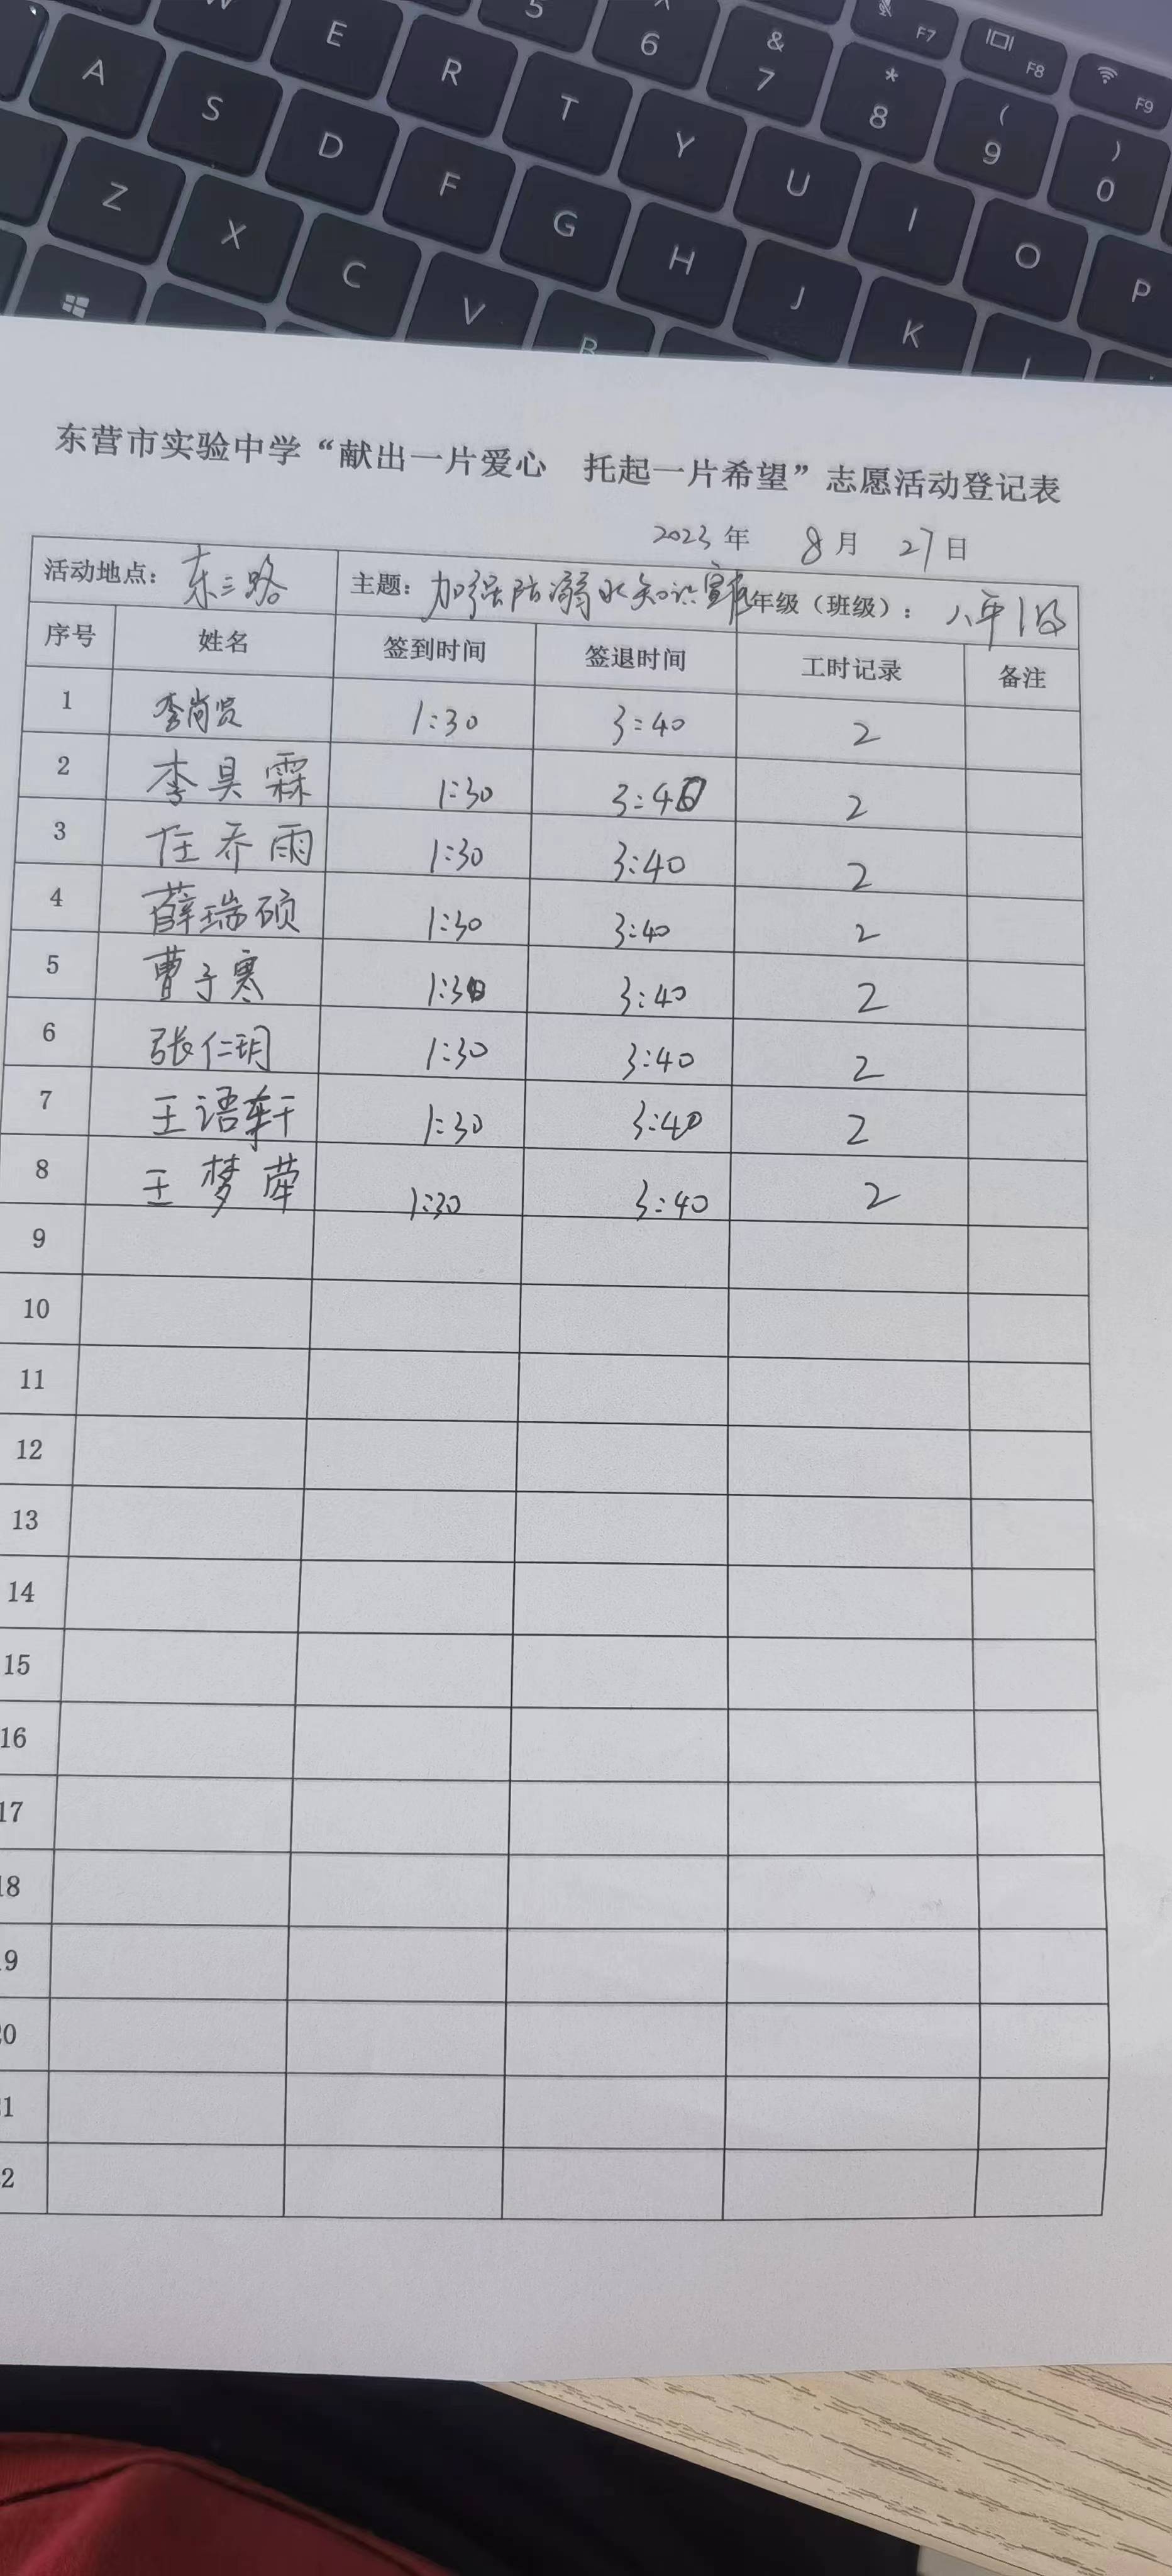 5 ^ 6 & 7 * 8 ( 9 ) 0 F7 F8 F9
E R T Y U I O P
A S D F G H J K
Z X C V B
东营市实验中学“献出一片爱心 托起一片希望”志愿活动登记表
2023 年 8 月 27 日
活动地点： 东三路 主题： 加强防溺水知识宣传 年级（班级）： 八年1级
序号 姓名 签到时间 签退时间 工时记录 备注
1 李尚贤 1:30 3:40 2
2 李昊霖 1:30 3:40 2
3 任乔雨 1:30 3:40 2
4 薛瑞硕 1:30 3:40 2
5 曹子寒 1:30 3:40 2
6 张仁玥 1:30 3:40 2
7 王语轩 1:30 3:40 2
8 王梦荦 1:30 3:40 2
9
10
11
12
13
14
15
16
17
18
19
20
21
22